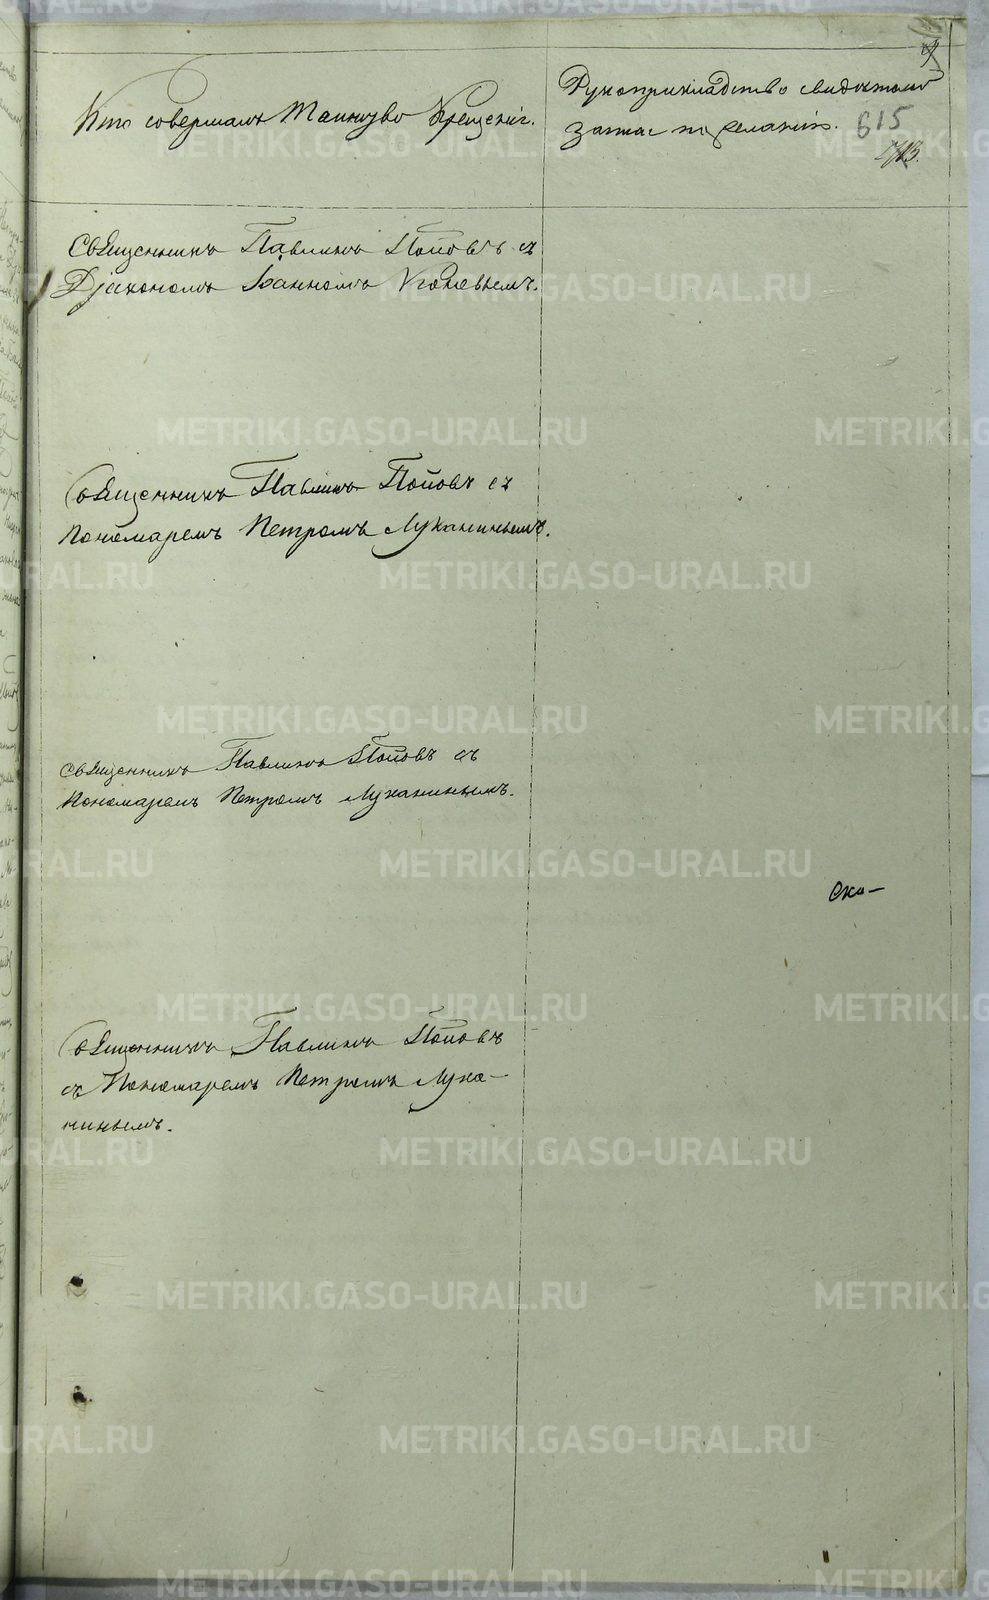 Кто совершалъ Таинство Крещенія.
Рукоприкладство свидѣтелей
записи по желанію. 615
Священникъ Павлинъ Поповъ съ
Діакономъ Іоанномъ
Священникъ Павлинъ Поповъ съ
Пономаремъ Петромъ Луканинымъ.
Священникъ Павлинъ Поповъ съ
Пономаремъ Петромъ Луканинымъ.
Ска-
Священникъ Павлинъ Поповъ
съ Пономаремъ Петромъ Лука-
нинымъ.
METRIKI.GASO-URAL.RU